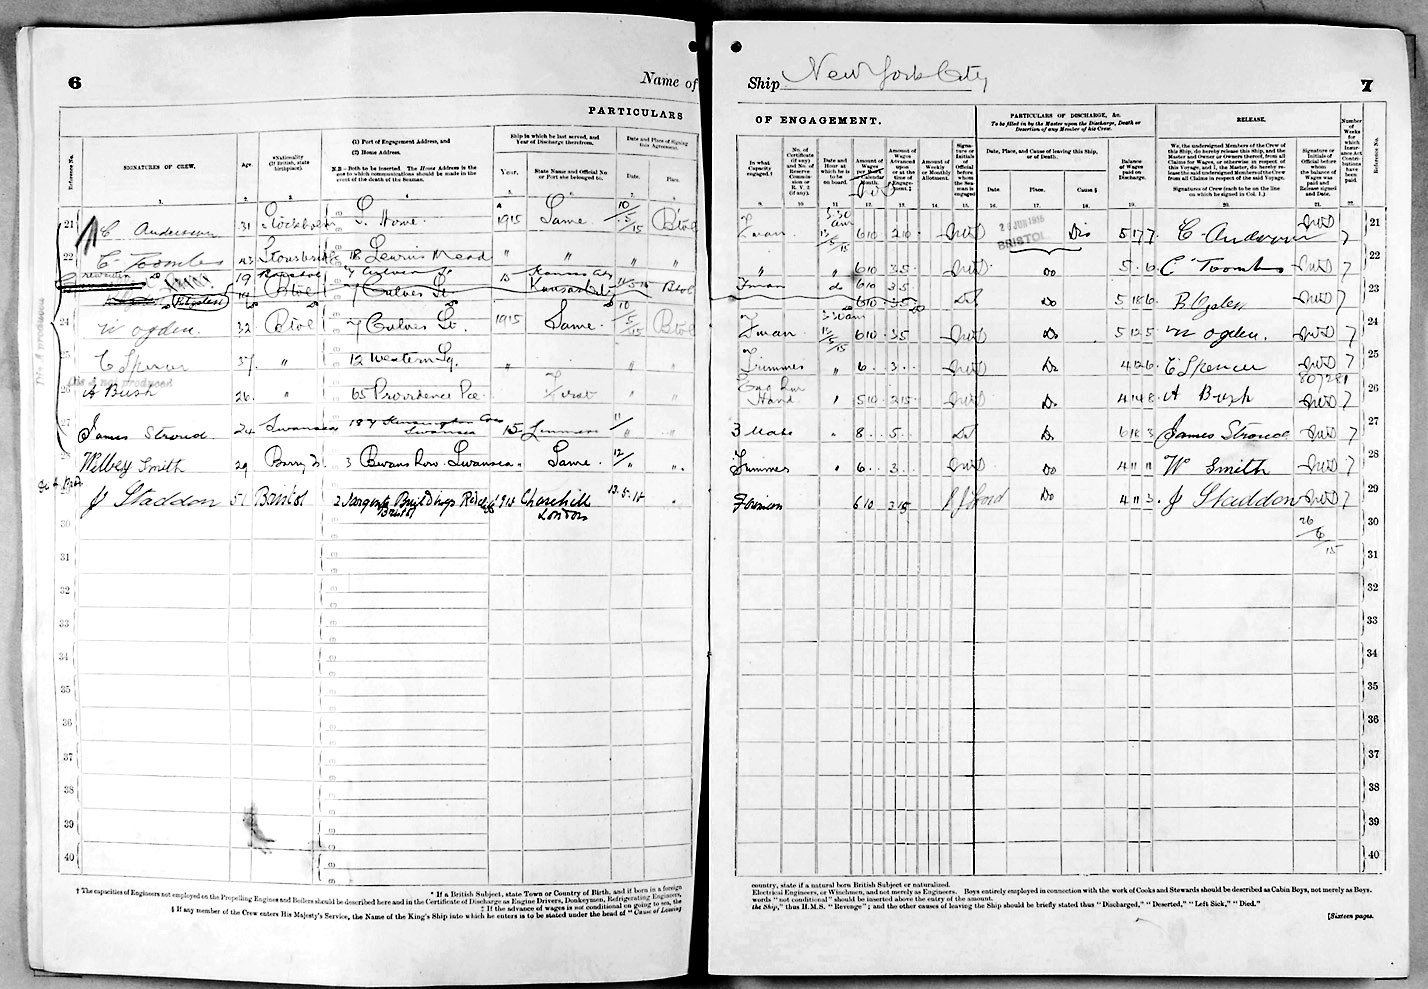 6
Name of
Ship New York City
7
PARTICULARS
OF ENGAGEMENT.
PARTICULARS OF DISCHARGE, &c.
To be filled in by the Master upon the Discharge, Death or Desertion of any Member of his Crew.
RELEASE.
We, the undersigned Members of the Crew of this Ship, do hereby release this Ship, and the Master and Owner or Owners thereof, from all Claims for Wages, or otherwise in respect of this Voyage, and I, the Master, do hereby release the said undersigned Members of the Crew from all Claims in respect of the said Voyage.
Signatures of Crew (each to be on the line on which he signed in Col. 1.)
Reference No.
SIGNATURES OF CREW.
Age.
*Nationality (If British, state birthplace).
(1) Port of Engagement Address, and
(2) Home Address.
N.B.—Both to be inserted. The Home Address is the one to which communications should be made in the event of the death of the Seaman.
Ship in which he last served, and Year of Discharge therefrom.
Year.
State Name and Official No or Port she belonged to.
Date and Place of Signing this Agreement.
Date.
Place.
In what Capacity engaged.†
No. of Certificate (if any) and No. of Reserve Commission or R.V. 2 (if any).
Date and Hour at which he is to be on board.
Amount of Wages per Week Calendar Month.
Amount of Wages Advanced upon or at the time of Engagement.‡
Amount of Weekly or Monthly Allotment.
Signature or Initials of Official before whom the Seaman is engaged
Date, Place, and Cause of leaving this Ship, or of Death.
Date.
Place.
Cause §
Balance of Wages paid on Discharge.
Signature or Initials of Official before whom the balance of Wages was paid and Release signed and Date.
Number of Weeks for which Insurance Act Contributions have been paid.
Reference No.
21 C Anderson 31 Stockholm S. Home. 1915 Same 10/5/15 Btol
Fman 5.30 am 13/5/15 6 10 2 10 26 JUN 1915 BRISTOL Dis 5 17 7 C Anderson 7 21
22 C Toombs 43 Stonebridge 18 Lewins Mead " " " "
" " 6 10 3 5 Do 5 . 6 C Toombs 7 22
19 7 Culver St Kansas City 11-5-15 Btol
Fman do 6 10 3 5 23
R Ogden 19 Btol 7 Culver St. Kansas City
6 10 3 5 Do 5 18 6 R Ogden 7
24 W Ogden. 32 Btol 7 Culver St. 1915 Same 10/5/15 Btol
Fman 5.30am 13/5/15 6 10 3 5 Do 5 12 5 W Ogden. 7 24
25 C Spencer 37 " 12 Western Sq. " " "
Trimmer " 6 . 3 . Do 4 12 6 C Spencer 7 25
26 A Bush 26 " 65 Providence Pce First " "
Hand " 5 10 2 15 Do 4 14 8 A Bush 807281 7 26
27 James Stroud 24 Swansea 187 Kensington Cres Swansea 15 11/ " "
3 Mate " 8 . 5 . Do 6 18 3 James Stroud 7 27
28 Wilbey Smith 29 Barry D. 3 Bevans Row. Swansea " Same 12/ " "
Trimmer " 6 . 3 . Do 4 11 11 W Smith 7 28
29 J Staddon 51 Bristol 2 Sargents Buildings Redcliff Bristol 915 Churchill London 12.5.15 "
Foreman 6 10 2 15 Do 4 11 3 J Staddon 7 29
30 26/6/15 30
31 31
32 32
33 33
34 34
35 35
36 36
37 37
38 38
39 39
40 40
† The capacities of Engineers not employed on the Propelling Engines and Boilers should be described here and in the Certificate of Discharge as Engine Drivers, Donkeymen, Refrigerating Engineers,
* If a British Subject, state Town or Country of Birth, and if born in a foreign
‡ If the advance of wages is not conditional on going to sea, the
§ If any member of the Crew enters His Majesty's Service, the Name of the King's Ship into which he enters is to be stated under the head of "Cause of Leaving
country, state if a natural born British Subject or naturalized.
Electrical Engineers, or Winchmen, and not merely as Engineers. Boys entirely employed in connection with the work of Cooks and Stewards should be described as Cabin Boys, not merely as Boys.
words "not conditional" should be inserted above the entry of the amount.
the Ship," thus H.M.S. "Revenge"; and the other causes of leaving the Ship should be briefly stated thus "Discharged," "Deserted," "Left Sick," "Died."
[Sixteen pages.